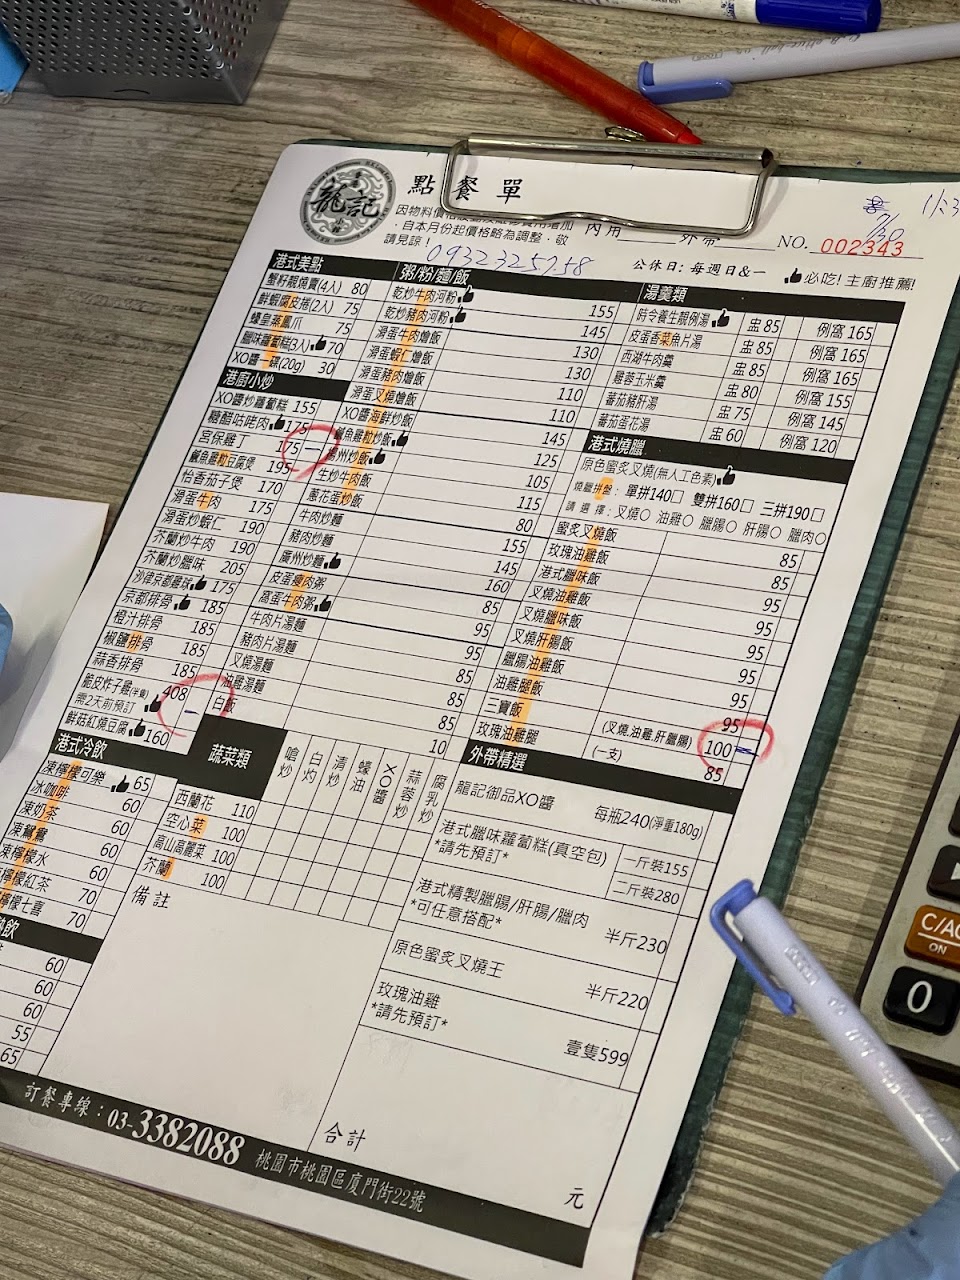 龍記
點餐單
自本月份起價格略為調整，敬
請見諒！
0932325758
內用
外帶
NO. 002343
7/30
公休日: 每週日&一
必吃! 主廚推薦!
港式美點
蟹籽靚燒賣(4入) 80
鮮蝦腐皮捲(2入) 75
蠔皇蒸鳳爪 75
臘味蘿蔔糕(3入) 70
XO醬一碟(20g) 30
港廚小炒
XO醬炒蘿蔔糕 155
糖醋咕咾肉 175
宮保雞丁 175 一
鹹魚雞粒豆腐煲 195
怡香茄子煲 170
滑蛋牛肉 175
滑蛋炒蝦仁 190
芥蘭炒牛肉 190
芥蘭炒臘味 205
沙律京都雞球 175
京都排骨 185
橙汁排骨 185
椒鹽排骨 185
蒜香排骨 185
脆皮炸子雞(半隻) 408 一
需2天前預訂
鮮菇紅燒豆腐 160
粥/粉/麵/飯
乾炒牛肉河粉 155
乾炒豬肉河粉 145
滑蛋牛肉燴飯 130
滑蛋蝦仁燴飯 130
滑蛋豬肉燴飯 110
滑蛋叉燒燴飯 110
XO醬海鮮炒飯 145
鹹魚雞粒炒飯 125
揚州炒飯 105
生炒牛肉飯 115
蔥花蛋炒飯 80
牛肉炒麵 155
豬肉炒麵 145
廣州炒麵 160
皮蛋瘦肉粥 85
窩蛋牛肉粥 95
牛肉片湯麵 95
豬肉片湯麵 85
叉燒湯麵 85
油雞湯麵 85
白飯 10
湯羹類
時令養生靚例湯 盅85 例窩165
皮蛋香菜魚片湯 盅85 例窩165
西湖牛肉羹 盅85 例窩165
雞蓉玉米羹 盅80 例窩155
蕃茄豬肝湯 盅75 例窩145
蕃茄蛋花湯 盅60 例窩120
港式燒臘
原色蜜炙叉燒(無人工色素)
燒臘拼盤: 單拼140□ 雙拼160□ 三拼190□
請選擇: 叉燒○ 油雞○ 臘腸○ 肝腸○ 臘肉○
蜜炙叉燒飯 85
玫瑰油雞飯 85
港式臘味飯 95
叉燒油雞飯 95
叉燒臘味飯 95
叉燒肝腸飯 95
臘腸油雞飯 95
油雞腿飯 95
三寶飯 (叉燒.油雞.肝臘腸) 100 一
玫瑰油雞腿 (一支) 85
外帶精選
龍記御品XO醬 每瓶240(淨重180g)
港式臘味蘿蔔糕(真空包) 一斤裝155
*請先預訂* 二斤裝280
港式精製臘腸/肝腸/臘肉 半斤230
*可任意搭配*
原色蜜炙叉燒王 半斤220
玫瑰油雞
*請先預訂* 壹隻599
港式冷飲
凍檸檬可樂 65
冰咖啡 60
凍奶茶 60
凍鴛鴦 60
凍檸檬水 60
凍檸檬紅茶 70
檸檬七喜 70
飲
60
60
55
65
蔬菜類 嗆炒 白灼 清炒 蠔油 XO醬 蒜蓉炒 腐乳炒
西蘭花 110
空心菜 100
高山高麗菜 100
芥蘭 100
備註
合計
元
訂餐專線：03-3382088 桃園市桃園區廈門街22號
C/AC
ON
0